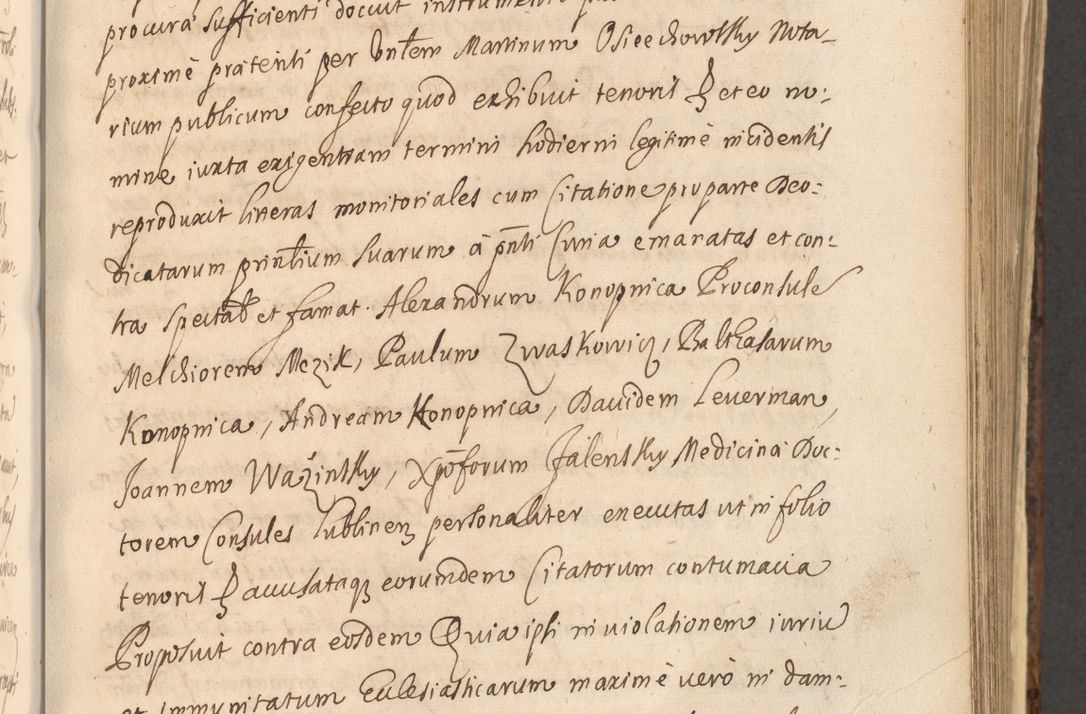 procura sufficienti docuit instrumento
proximè præteriti per Vnłem Martinum Osieechowsky Nota-
rium publicum confecto quod exhibuit tenoris et eo no:
mine iuxta exigentiam termini hodierni legitimè incidentis
reproduxit literas monitoriales cum Citatione pro parte Deo:
dicatarum prinłium suarum à pñti Curia emanatas et con:
tra spectab et famat. Alexandrum Konopnica Proconsule
Melchiorem Mezik, Paulum Zwaskowicz, Balthasarum
Konopnica, Andream Konopnica, Dauidem Leuerman,
Joannem Ważinsky, Xpõforum Jalensky Medicinæ Doc:
torem Consules Lublinen personaliter executas ut in folio
tenoris accusataq eorumdem Citatorum contumacia
Proposuit contra eosdem Quia ipsi in uiolationem iuriu
et Immunitatum Ecclesiasticarum maximè uerò in dam: